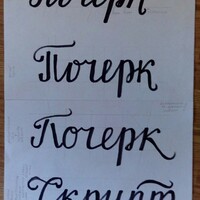 Почерк
Почерк
Почерк
Скрипт